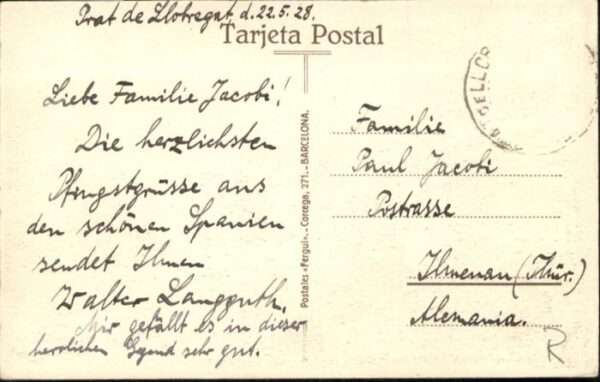 Prat de Llobregat, d. 22.5.28.
Tarjeta Postal
Liebe Familie Jacobi!
Die herzlichsten
Pfingstgrüsse aus
den schönen Spanien
sendet Ihnen
Walter Langguth.
Mir gefällt es in dieser
herrlichen Gegend sehr gut.
Postales «Fergui».-Corcega, 271.-BARCELONA.
Familie
Paul Jacobi
Postrasse
Ilmenau (Thür.)
Alemania.
R